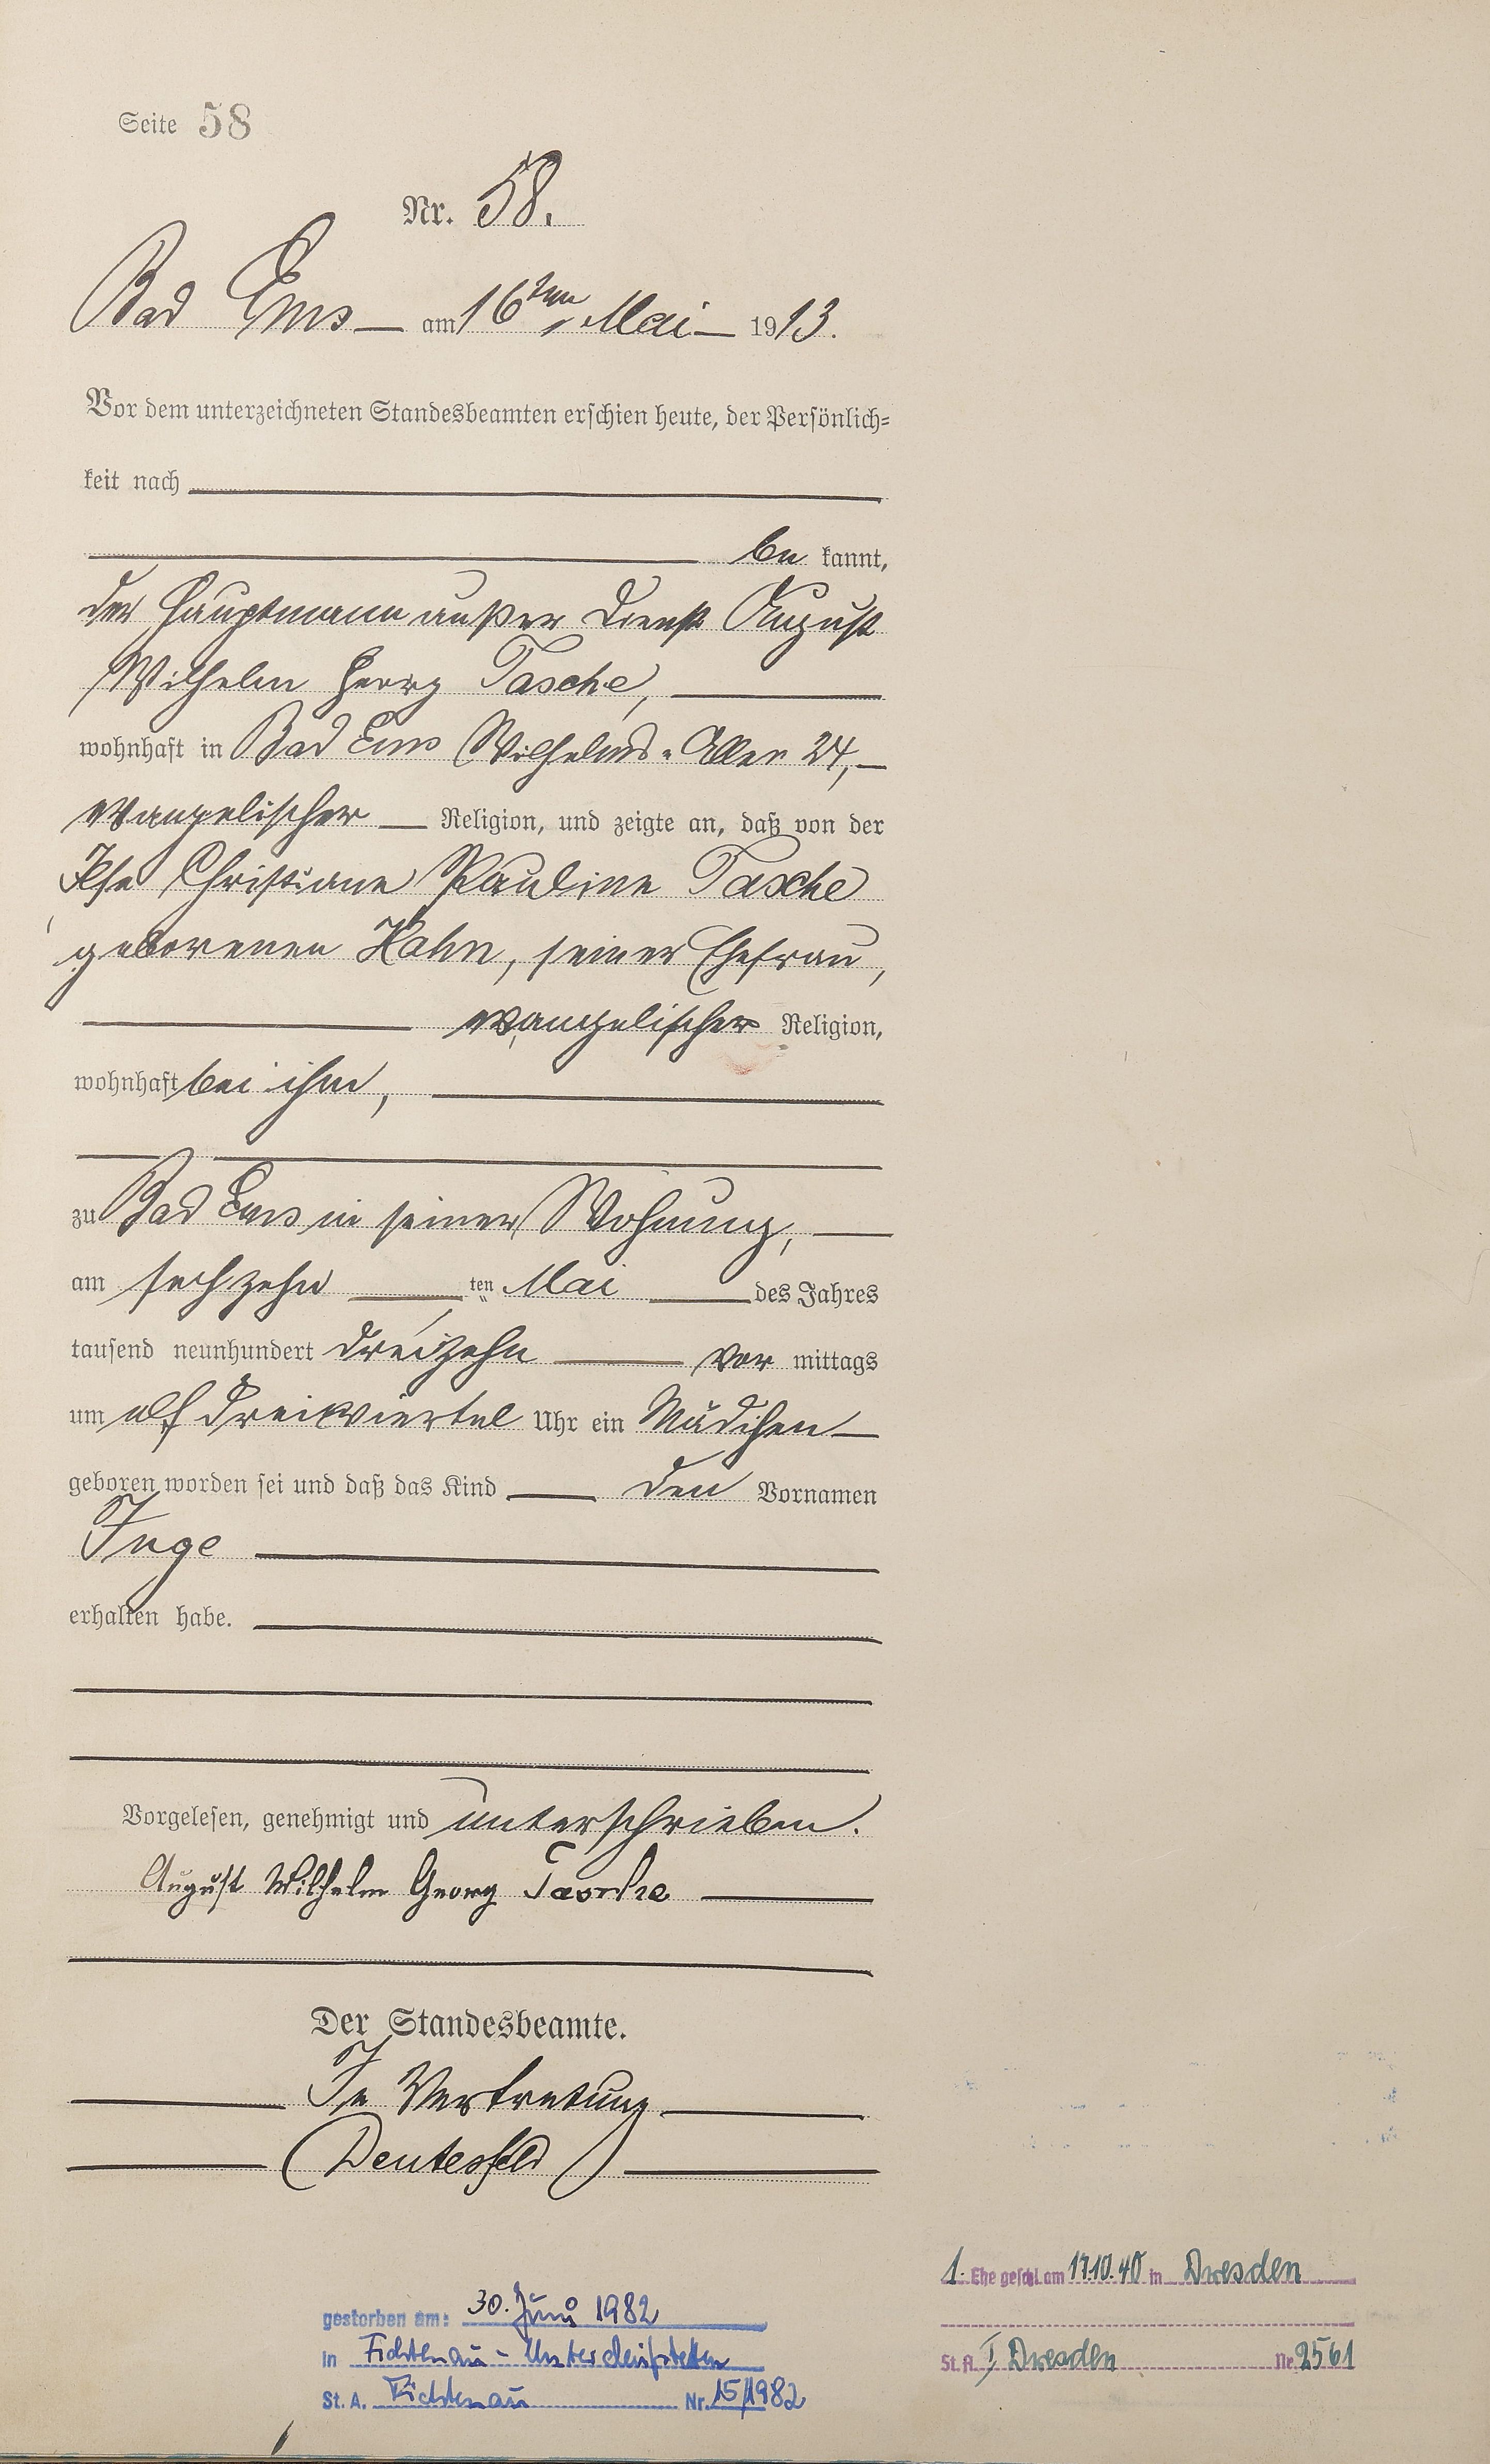 Seite 58
Nr. 58.
Bad Ems am 16ten Mai 1913.
Vor dem unterzeichneten Standesbeamten erschien heute, der Persönlich=
keit nach
be kannt,
der Hauptmann außer Dienst August
Wilhelm Georg Tasche,
wohnhaft in Bad Ems Wilhelms-Allee 24,
evangelischer Religion, und zeigte an, daß von der
Ilse Christiane Pauline Tasche
geborenen Hahn, seiner Ehefrau,
evangelischer Religion,
wohnhaft bei ihm,
zu Bad Ems in seiner Wohnung,
am sechzehn ten Mai des Jahres
tausend neunhundert dreizehn vor mittags
um elf dreiviertel Uhr ein Mädchen
geboren worden sei und daß das Kind den Vornamen
Inge
erhalten habe.
Vorgelesen, genehmigt und unterschrieben.
August Wilhelm Georg Tasche
Der Standesbeamte.
In Vertretung
(Deutesfeld)
1. Ehe geschl. am 17.10.40 in Dresden
St. A. I, Dresden Nr. 2561
gestorben am: 30. Juni 1982
in Fichtenau - Unterdeufstetten
St. A. Fichtenau Nr. 15/1982